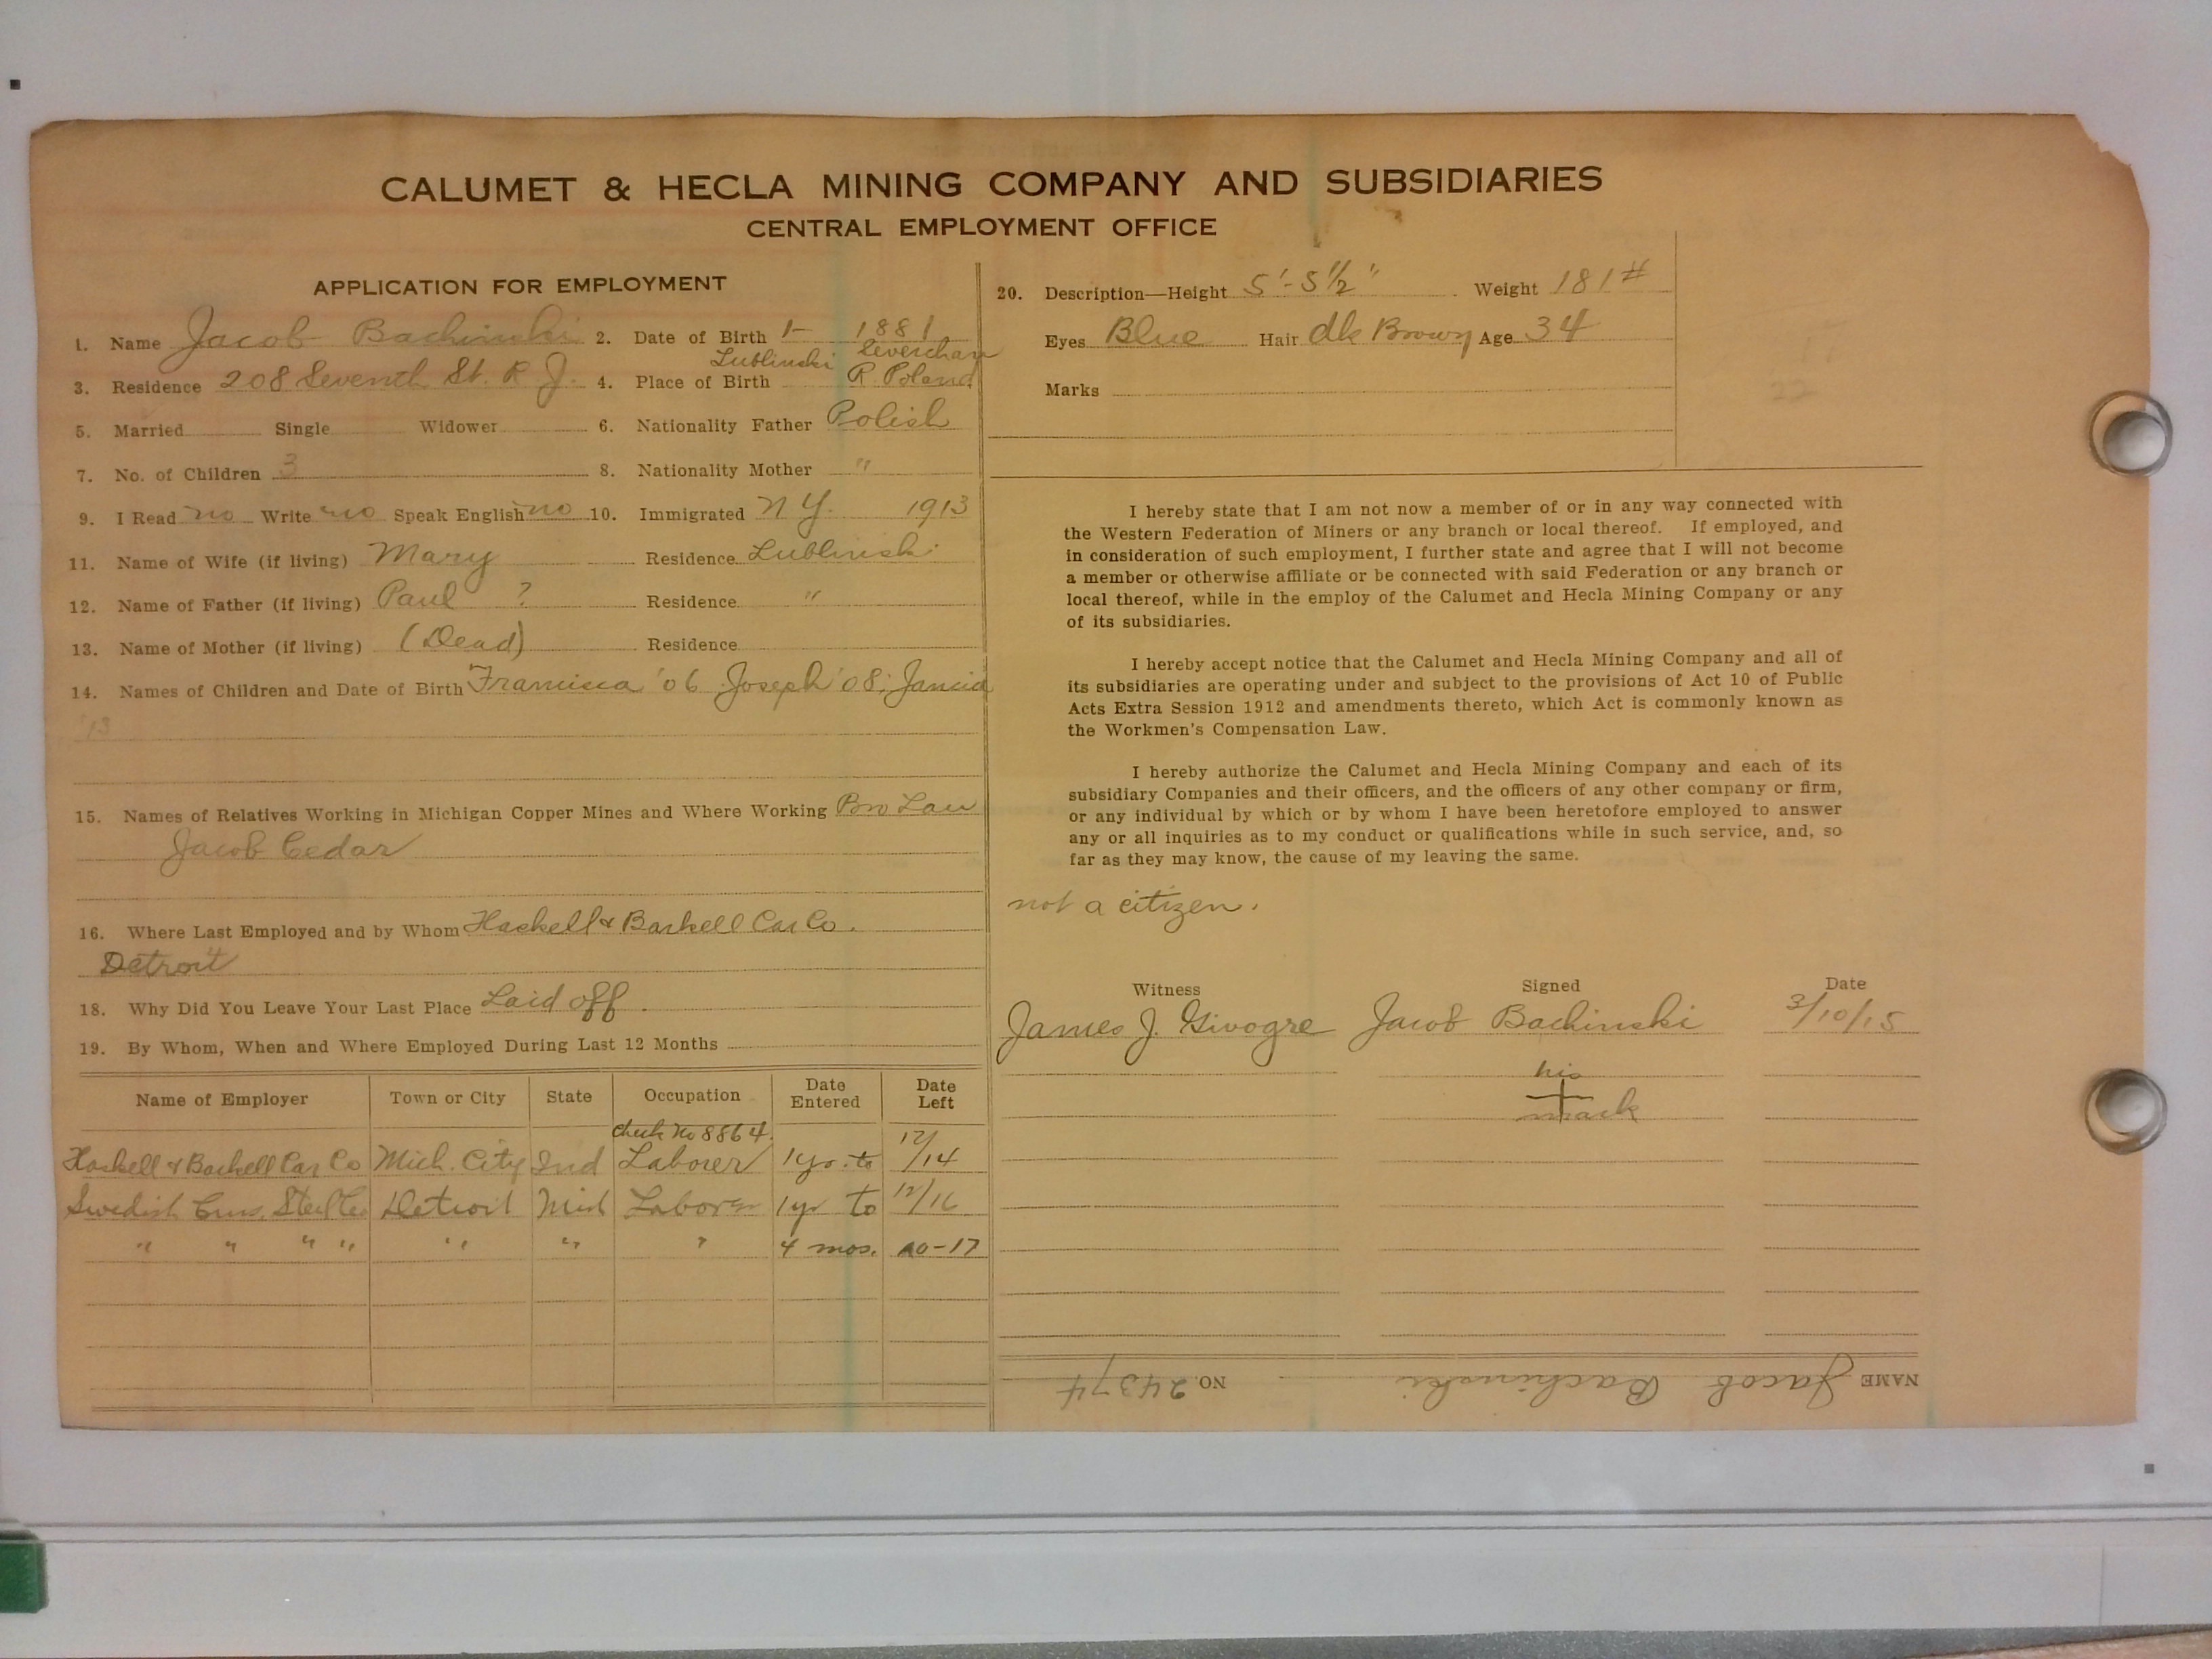 CALUMET & HECLA MINING COMPANY AND SUBSIDIARIES
CENTRAL EMPLOYMENT OFFICE
APPLICATION FOR EMPLOYMENT
1. Name Jacob Bachinski 2. Date of Birth 1- 1881
Lublinski
3. Residence 208 Seventh St. R J. 4. Place of Birth R. Poland
5. Married Single Widower 6. Nationality Father Polish
7. No. of Children 3 8. Nationality Mother "
9. I Read no Write no Speak English no 10. Immigrated N Y. 1913
11. Name of Wife (if living) Mary Residence Lublinski
12. Name of Father (if living) Paul ? Residence "
13. Name of Mother (if living) (Dead) Residence
14. Names of Children and Date of Birth '06 Joseph '08;
'13
15. Names of Relatives Working in Michigan Copper Mines and Where Working Bro Law
Jacob Cedar
16. Where Last Employed and by Whom Haskell & Barkell Car Co.
Detroit
18. Why Did You Leave Your Last Place Laid off.
19. By Whom, When and Where Employed During Last 12 Months
Name of Employer Town or City State Occupation Date Entered Date Left
check no 8864.
Haskell & Barkell Car Co Mich. City Ind Laborer 1 yr. to 12/14
Swedish Steel Co Detroit Mich Laborer 1 yr to 12/16
" " " " " " " 4 mos. 10-17
20. Description—Height 5'-5½" Weight 181#
Eyes Blue Hair dk Brown Age 34
Marks
I hereby state that I am not now a member of or in any way connected with
the Western Federation of Miners or any branch or local thereof. If employed, and
in consideration of such employment, I further state and agree that I will not become
a member or otherwise affiliate or be connected with said Federation or any branch or
local thereof, while in the employ of the Calumet and Hecla Mining Company or any
of its subsidiaries.
I hereby accept notice that the Calumet and Hecla Mining Company and all of
its subsidiaries are operating under and subject to the provisions of Act 10 of Public
Acts Extra Session 1912 and amendments thereto, which Act is commonly known as
the Workmen's Compensation Law.
I hereby authorize the Calumet and Hecla Mining Company and each of its
subsidiary Companies and their officers, and the officers of any other company or firm,
or any individual by which or by whom I have been heretofore employed to answer
any or all inquiries as to my conduct or qualifications while in such service, and, so
far as they may know, the cause of my leaving the same.
not a citizen.
Witness Signed Date
James J. Givogre Jacob Bachinski 3/10/15
his
mark
NAME Jacob Bachinski NO. 24374